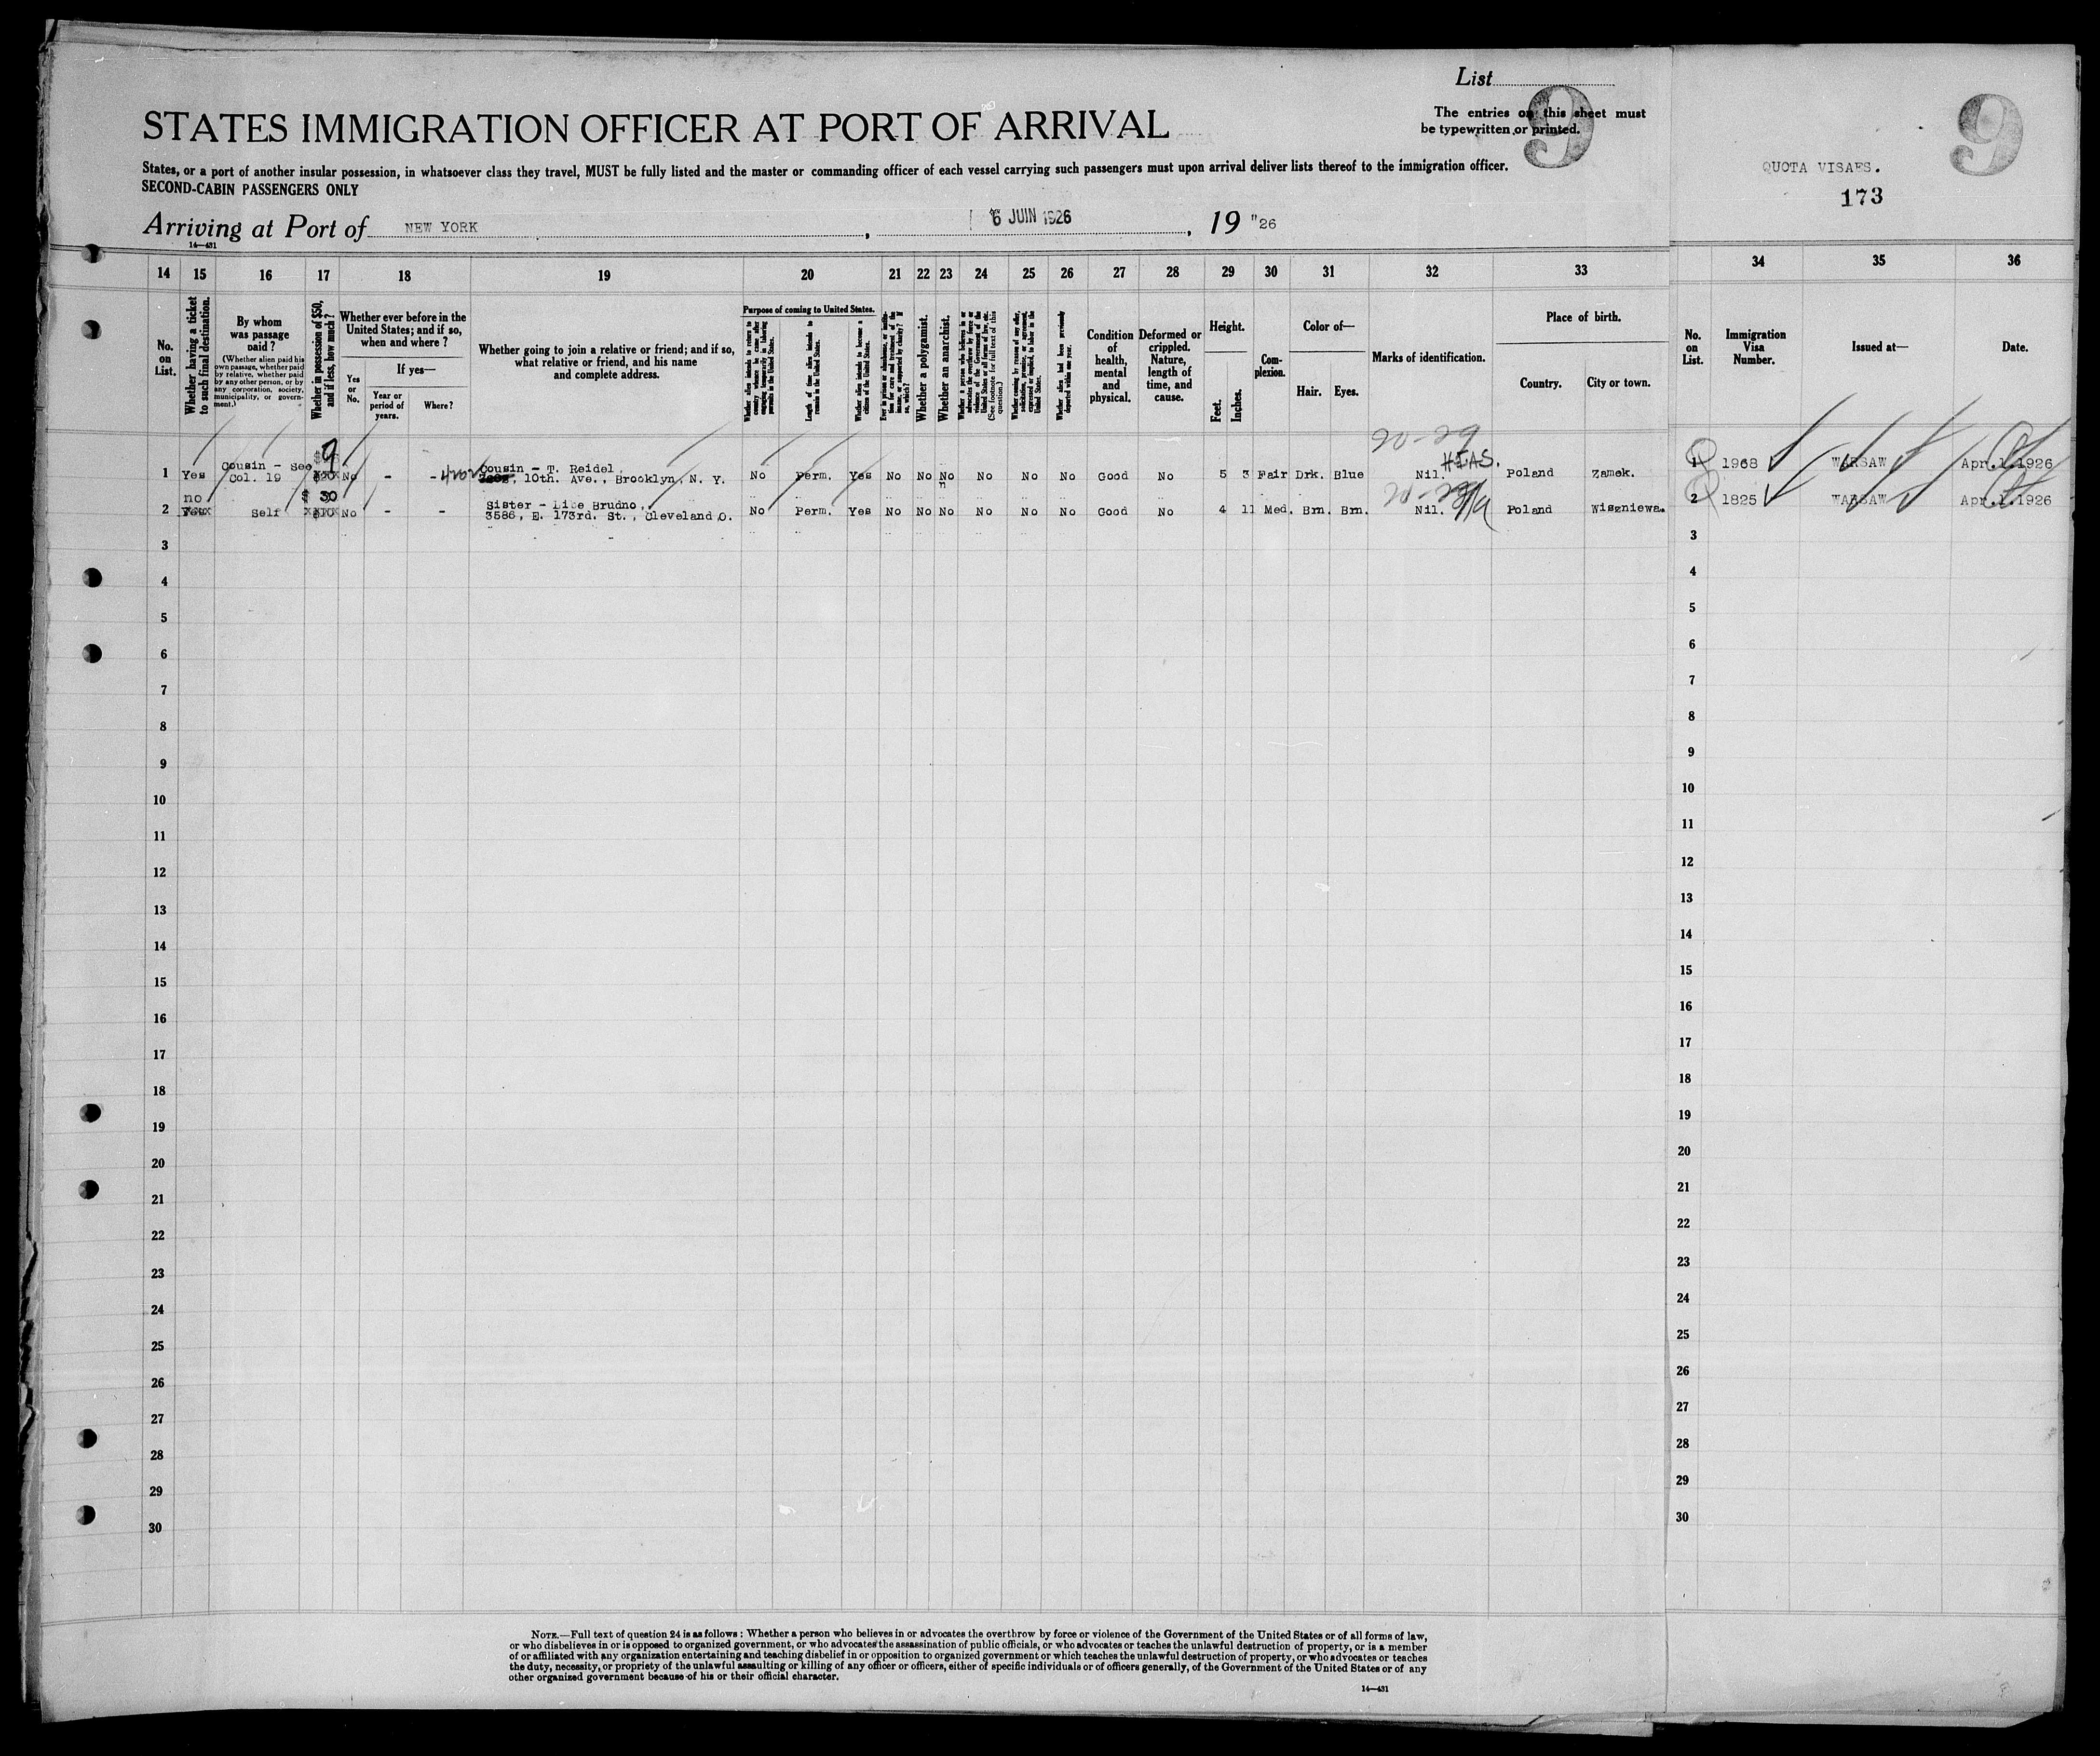 List
9
The entries on this sheet must
be typewritten or printed.
STATES IMMIGRATION OFFICER AT PORT OF ARRIVAL
States, or a port of another insular possession, in whatsoever class they travel, MUST be fully listed and the master or commanding officer of each vessel carrying such passengers must upon arrival deliver lists thereof to the immigration officer.
SECOND-CABIN PASSENGERS ONLY
Arriving at Port of NEW YORK , 6 JUIN 1926 , 19 "26
14—431
9
QUOTA VISAES.
173
14 15 16 17 18 19 20 21 22 23 24 25 26 27 28 29 30 31 32 33 34 35 36
No. on List.
Whether having a ticket to such final destination.
By whom was passage paid?
(Whether alien paid his own passage, whether paid by relative, whether paid by any other person, or by any corporation, society, municipality, or government.)
Whether in possession of $50, and if less, how much?
Whether ever before in the United States; and if so, when and where?
Yes or No.
If yes—
Year or period of years.
Where?
Whether going to join a relative or friend; and if so, what relative or friend, and his name and complete address.
Purpose of coming to United States.
Whether alien intends to return to country whence he came after engaging temporarily in laboring pursuits in the United States.
Length of time alien intends to remain in the United States.
Whether alien intends to become a citizen of the United States.
Whether a polygamist.
Whether an anarchist.
(See footnote for full text of this question.)
Whether alien had been previously deported within one year.
Condition of health, mental and physical.
Deformed or crippled. Nature, length of time, and cause.
Height.
Feet.
Inches.
Complexion.
Color of—
Hair.
Eyes.
Marks of identification.
Place of birth.
Country.
City or town.
No. on List.
Immigration Visa Number.
Issued at—
Date.
1 Yes Cousin - See Col. 19 9 No - - 4202 Cousin - T. Reidel, 10th. Ave., Brooklyn, N. Y. No Perm. Yes No No No No No No Good No 5 3 Fair Drk. Blue Nil. HIAS. Poland Zamek. 1 1968 WARSAW Apr.1.1926
2 no Self $ 30 No - - Sister - Libe Brudno, 3586, E. 173rd. St., Cleveland O. No Perm. Yes No No No No No No Good No 4 11 Med. Brn. Brn. Nil. Poland Wiszniewa. 2 1825 WARSAW Apr.1.1926
3 3
4 4
5 5
6 6
7 7
8 8
9 9
10 10
11 11
12 12
13 13
14 14
15 15
16 16
17 17
18 18
19 19
20 20
21 21
22 22
23 23
24 24
25 25
26 26
27 27
28 28
29 29
30 30
NOTE.—Full text of question 24 is as follows: Whether a person who believes in or advocates the overthrow by force or violence of the Government of the United States or of all forms of law,
or who disbelieves in or is opposed to organized government, or who advocates the assassination of public officials, or who advocates or teaches the unlawful destruction of property, or is a member
of or affiliated with any organization entertaining and teaching disbelief in or opposition to organized government or which teaches the unlawful destruction of property, or who advocates or teaches
the duty, necessity, or propriety of the unlawful assaulting or killing of any officer or officers, either of specific individuals or of officers generally, of the Government of the United States or of any
other organized government because of his or their official character.
14—431